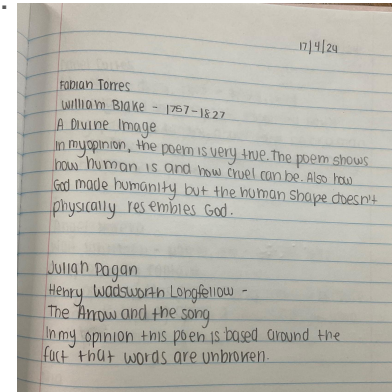 17/4/24
Fabian Torres
William Blake - 1757-1827
A Divine Image
In my opinion, the poem is very true. The poem shows
how human is and how cruel can be. Also how
God made humanity but the human shape doesn't
physically resembles God.
Julian Pagan
Henry Wadsworth Longfellow -
The Arrow and the song
In my opinion this poem is based around the
fact that words are unbroken.